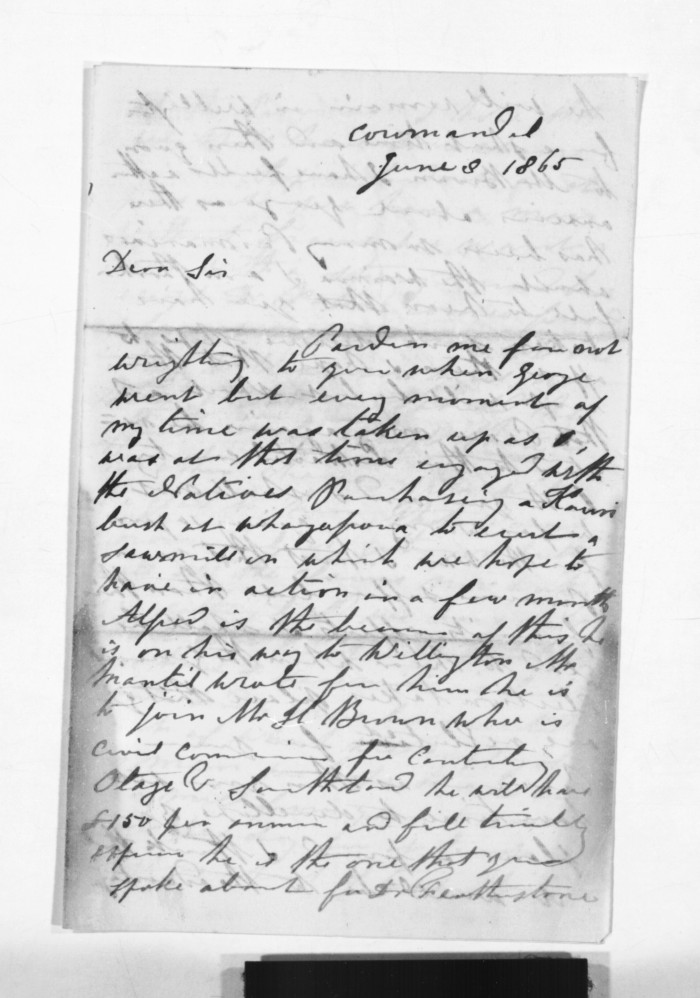 Cowmandel
June 8 1865
Dear Sir
Pardon me for not
wrighting to you when George
went but every moment of
my time was taken up as I,
was at that time engaged with
the Natives Purchasing a Kauri
bush at whagapoua to erect a
sawmill on which we hope to
have in action in a few months
Alfred is the bearer of this, he
is on his way to Willington Mr
Mantil wrote for him he is
to join Mr St Brown who is
civil for
Otago & Southland he will have
£150 per annum and
he is the one that you
spoke about for Dr Featherstone